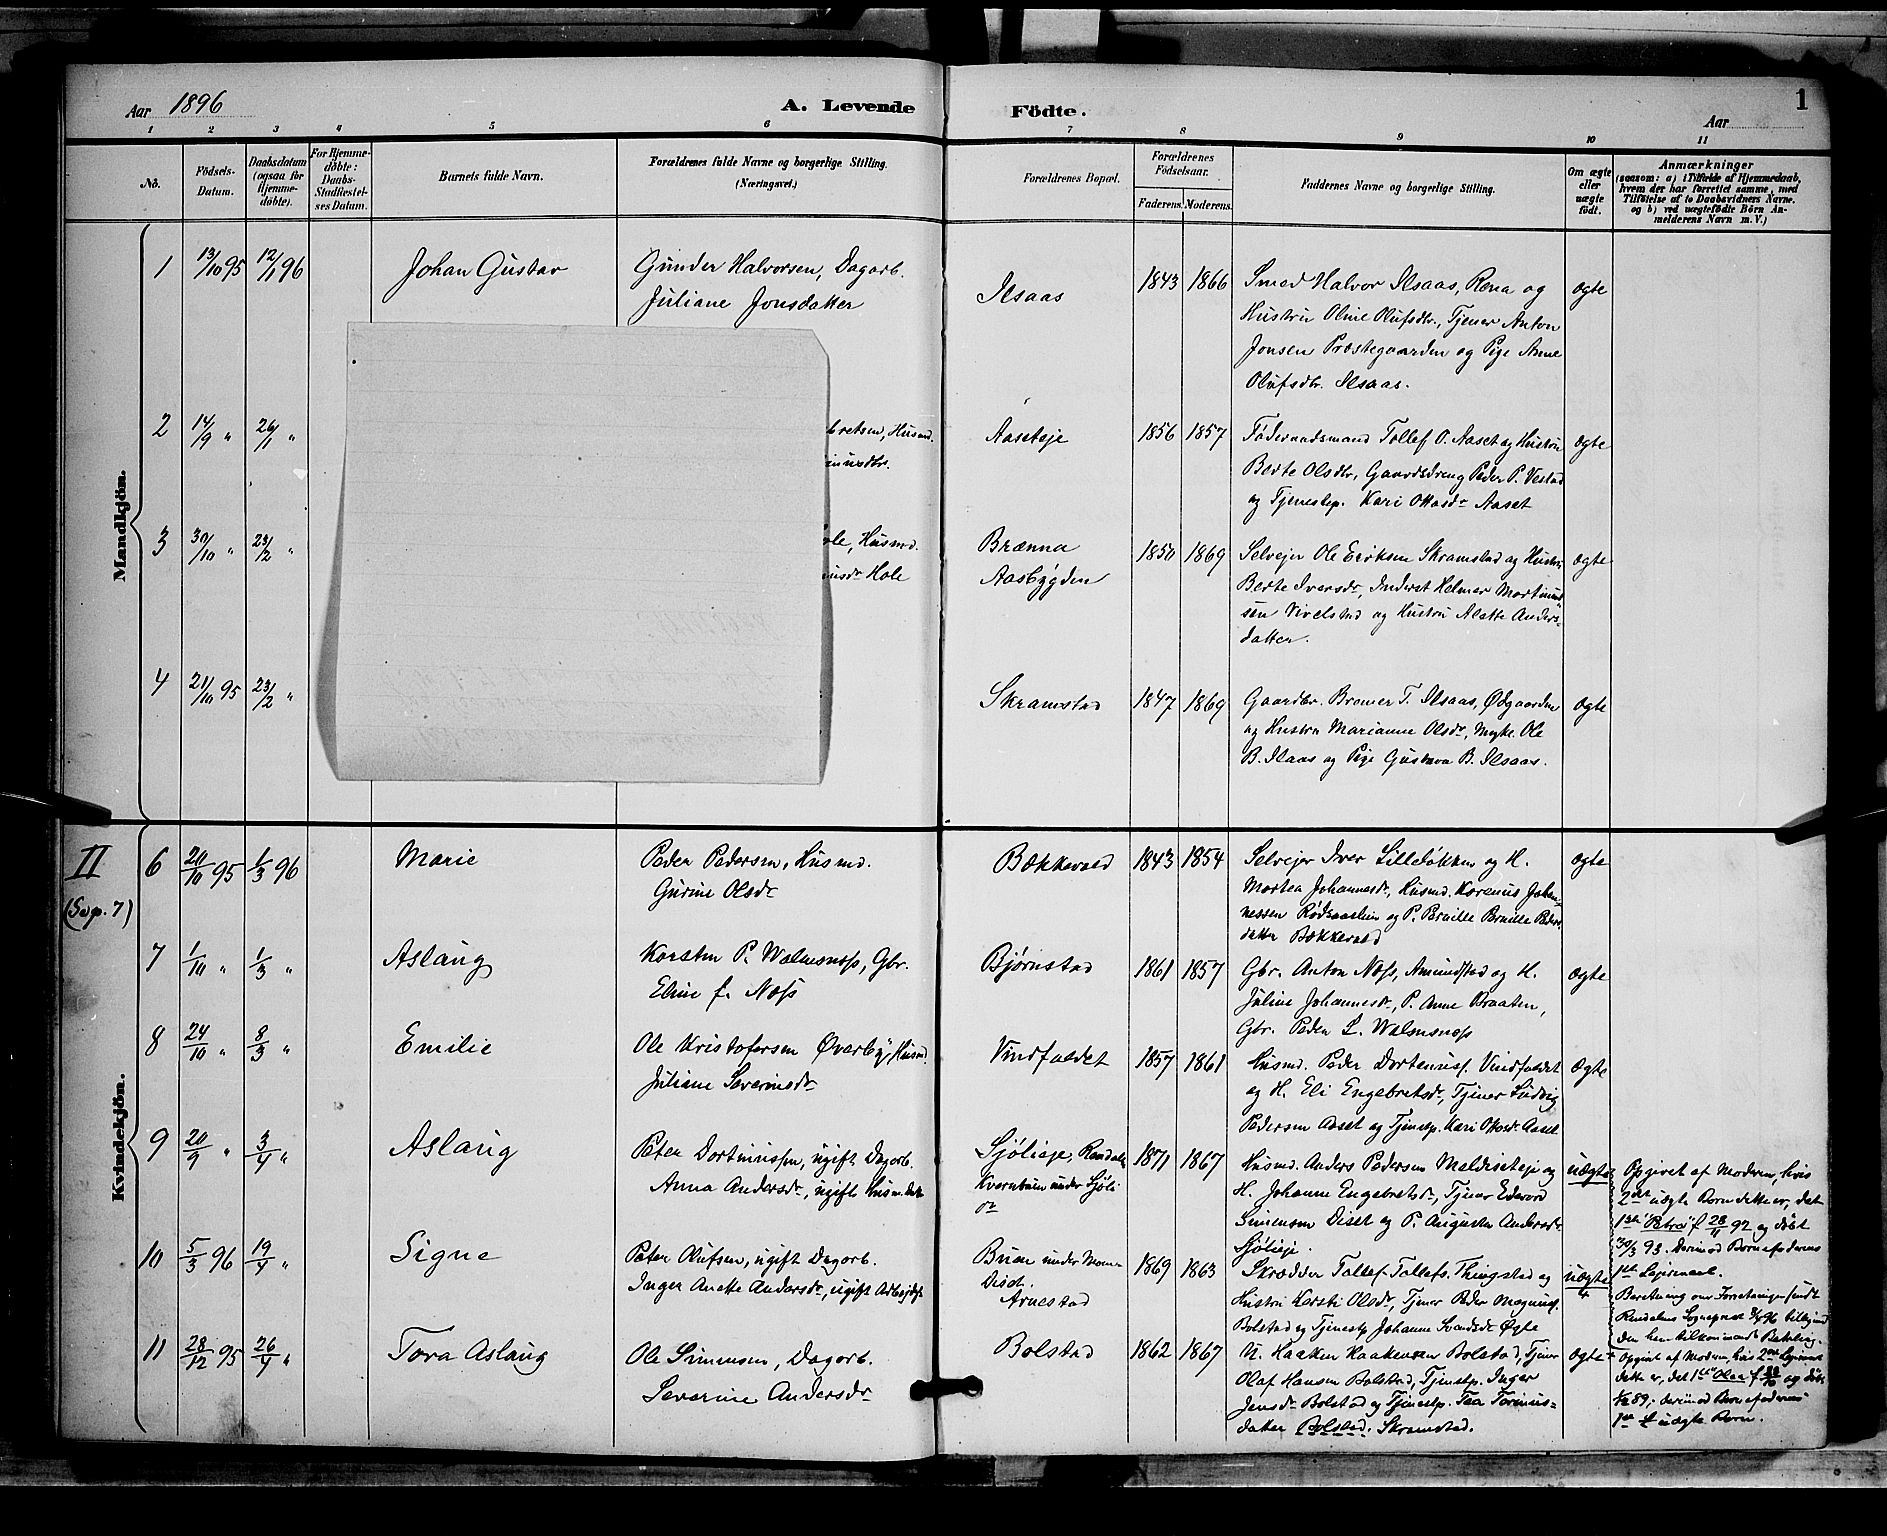 Aar 1896
A. Levende
Födte.
Aar
1
1 2 3 4 5 6 7 8 9 10 11
No.
Födsels-
Datum.
Daabsdatum
(ogsaa for
Hjemme-
döbte).
For Hjemme-
döbte:
Daabs-
Stadfæstel-
ses Datum.
Barnets fulde Navn.
Forældrenes fulde Navne og borgerlige Stilling.
(Næringsvei.)
Forældrenes Bopæl.
Forældrenes
Födselsaar.
Faderens. Moderens.
Faddernes Navne og borgerlige Stilling.
Om ægte
eller
uægte
födt.
Anmærkninger
(saasom: a) i Tilfælde af Hjemmedaab,
hvem der har forrettet samme, med
Tilföielse af to Daabsvidners Navne.
og b) ved uægtefödte Börn An-
melderens Navn m. V.)
Mandkjön.
1 13/10 95 12/1 96 Johan Gustav
Gunder Halvorsen, Dagarb.
Juliane Jonsdatter
Ilsaas
1843 1866
Smed Halvor Ilsaas, Rena og
Hustru Oline Olufsdtr., Tjener Anton
Jonsen Præstegaarden og Pige Anne
Olufsdtr. Ilsaas.
ægte
2 14/9 " 26/1 "
bretsen, Husmd.
inusdtr.
Aaseteje
1856 1857
Föderaadsmand Tollef O. Aaset og Hustru
Berte Olsdtr, Gaardsdreng Peder P. Vestad
og Tjenestep. Kari Ottosdr Aaset
ægte
3 30/10 " 23/2 "
ole, Husmd.
nusdr Hole
Brænna
Aasbygden
1850 1869
Selvejer Ole Eriksen Skramstad og Hustru
Berte Iversdr, Inderst Helmer Martinus-
sen Vivelstad og Hustru Alette Anders-
datter.
ægte
4 21/10 95 23/2 "
Skramstad
1847 1869
Gaardbr. Bremer T. Ilsaas, Ødegaarden
og Hustru Marianne Olsdr, Ungk. Ole
B. Ilsaas og Pige Gustava B. Ilsaas.
ægte
Kvindekjön.
II
(Se p. 7)
6 20/10 95 1/3 96 Marie
Peder Pedersen, Husmd.
Gurine Olsdr
Bækkevold
1843 1854
Selvejer Iver Lilleløkken og H.
Martea Johannesdr, Husmd. Karenus Johan-
nessen Rødsaasheim og P. Pernille Peders-
datter Bækkevold
ægte
7 1/10 " 1/3 " Aslaug
Karsten P. Walmsnæss, Gbr.
Eline f. Næss
Bjørnstad
1861 1857
Gbr. Anton Næss, Amundstad og H.
Juline Johannesdr, P. Anne Braaten,
Gbr. Peder L. Walmsnæss
ægte
8 24/10 " 8/3 " Emilie
Ole Kristofersen Øverby, Husmd.
Juliane Severinsdr
Vindfaldet
1857 1861
Husmd. Peder Dortinuss. Vindfaldet
og H. Eli Engebretsdr, Tjener Ludvig
Pedersen Aaset og Tjenestp. Kari Ottosdr Aaset
ægte
9 20/9 " 3/4 " Aslaug
Peter Dortinussen, ugift Dagarb.
Anna Andersdr, ugift Husm.datt.
Sjølieje, Rendalen
Kvernbuen under Sjøli
1871 1867
Husmd. Anders Pedersen Meldiseteje og
H. Johanne Engebretsdr, Tjener Edvard
Simensen Diset og P. Augusta Andersdr
Sjølieje.
uægte
Opgivet af Moderen, hvis
2det uægte Barn dette er, det
1ste "Petra" f. 28/11 92 og død
30/3 93. Derimod Barnefaderens
1ste Lejermaal.
Beretning om Forretningen sendt
Rendalens Sognepræst 3/4 96
10 5/3 96 19/4 " Signe
Peter Olufsen, ugift Dagarb.
Inger Anette Andersdr, ugift
Buen under
Diset
Arnestad
1869 1863
Skrædder Tollef Tollefs. Thingstad og
Hustru Kersti Olsdr, Tjener Peder Magnuss.
Bolstad og Tjenestp Johanne Svendsdr Øgle
uægte
Opgivet af Moderen, hvis 2det Lejermaal
dette er, det 1ste Olea f. og død
89, derimod Barnefaderens
1ste uægte Barn.
11 28/12 95 26/4 " Tora Aslaug
Ole Simensen, Dagarb.
Severine Andersdr
Bolstad
1862 1867
U. Haaken Haakensen Bolstad, Tjener
Olaf Hansen Bolstad, Tjenestp. Inger
Jensdr Bolstad og Tjenestp. Tea Torinus-
datter Bolstad. Skramstad.
ægte